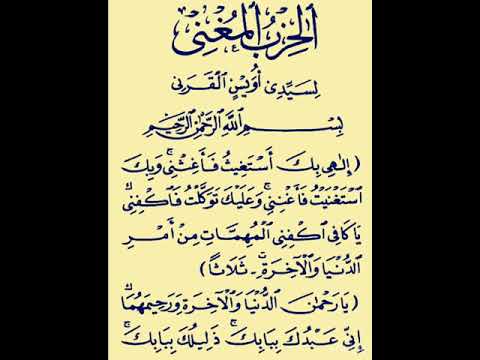 اَلْحِزْبُ الْمُغْنِى
لِسَيِّدِى أُوَيْسٍ ٱلْقَرَنِى
بِسْمِ اللَّهِ الرَّحْمٰنِ الرَّحِيْمِ
(إِلٰهِى بِكَ أَسْتَغِيْثُ فَأَغِثْنِىْ وَبِكَ
ٱسْتَغْنَيْتُ فَأَغْنِنِىْ وَعَلَيْكَ تَوَكَّلْتُ فَاكْفِنِىْ
يَا كَافِى اكْفِنِى الْمُهِمَّاتِ مِنْ أَمْرِ
الدُّنْيَا وَالْآخِرَةِ ـ ثَلَاثًا)
(يَا رَحْمٰنَ الدُّنْيَا وَالْآخِرَةِ وَرَحِيْمَهُمَا
إِنِّىْ عَبْدُكَ بِبَابِكَ ذَلِيْلُكَ بِبَابِكَ